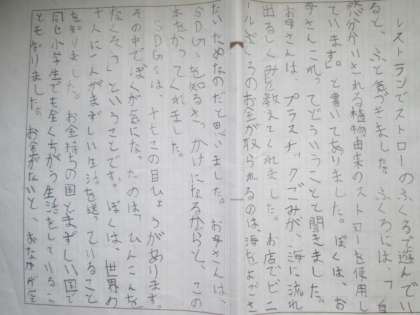 レストランでストローのふくろで遊んでい
ると、ふと気づきました。ふくろには、「自
然分かいされる植物由来のストローを使用し
ています。」と書いてありました。ぼくは、お
母さんにこれってどういうことって聞きました。
お母さんは、プラスチックごみが、海に流れ
出るしくみを教えてくれました。お店でビニ
ールぶくろのお金が取られるのは、海をよごさ
ないためなのだと思いました。お母さんは、
SDGsを知るきっかけになるからと、この
本をかってくれました。
SDGsは、十七この目ひょうがあります。
その中でぼくが気になったのは「ひんこんを
なくそう」ということです。ぼくは、世界の
人に一人がまずしい生活を送っていること
を知りました。お金持ちの国とまずしい国で
同じ小学生でも全くちがう生活をしているこ
ともわかりました。お金がないと、おなかが空